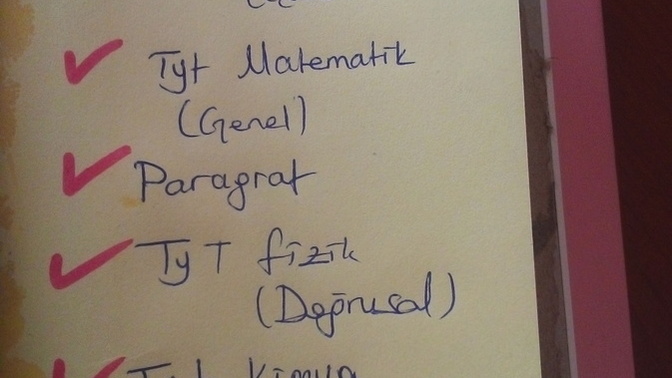 Tyt Matematik
(Genel)
Paragraf
TyT fizik
(Doğrusal)
Tyt Kimya